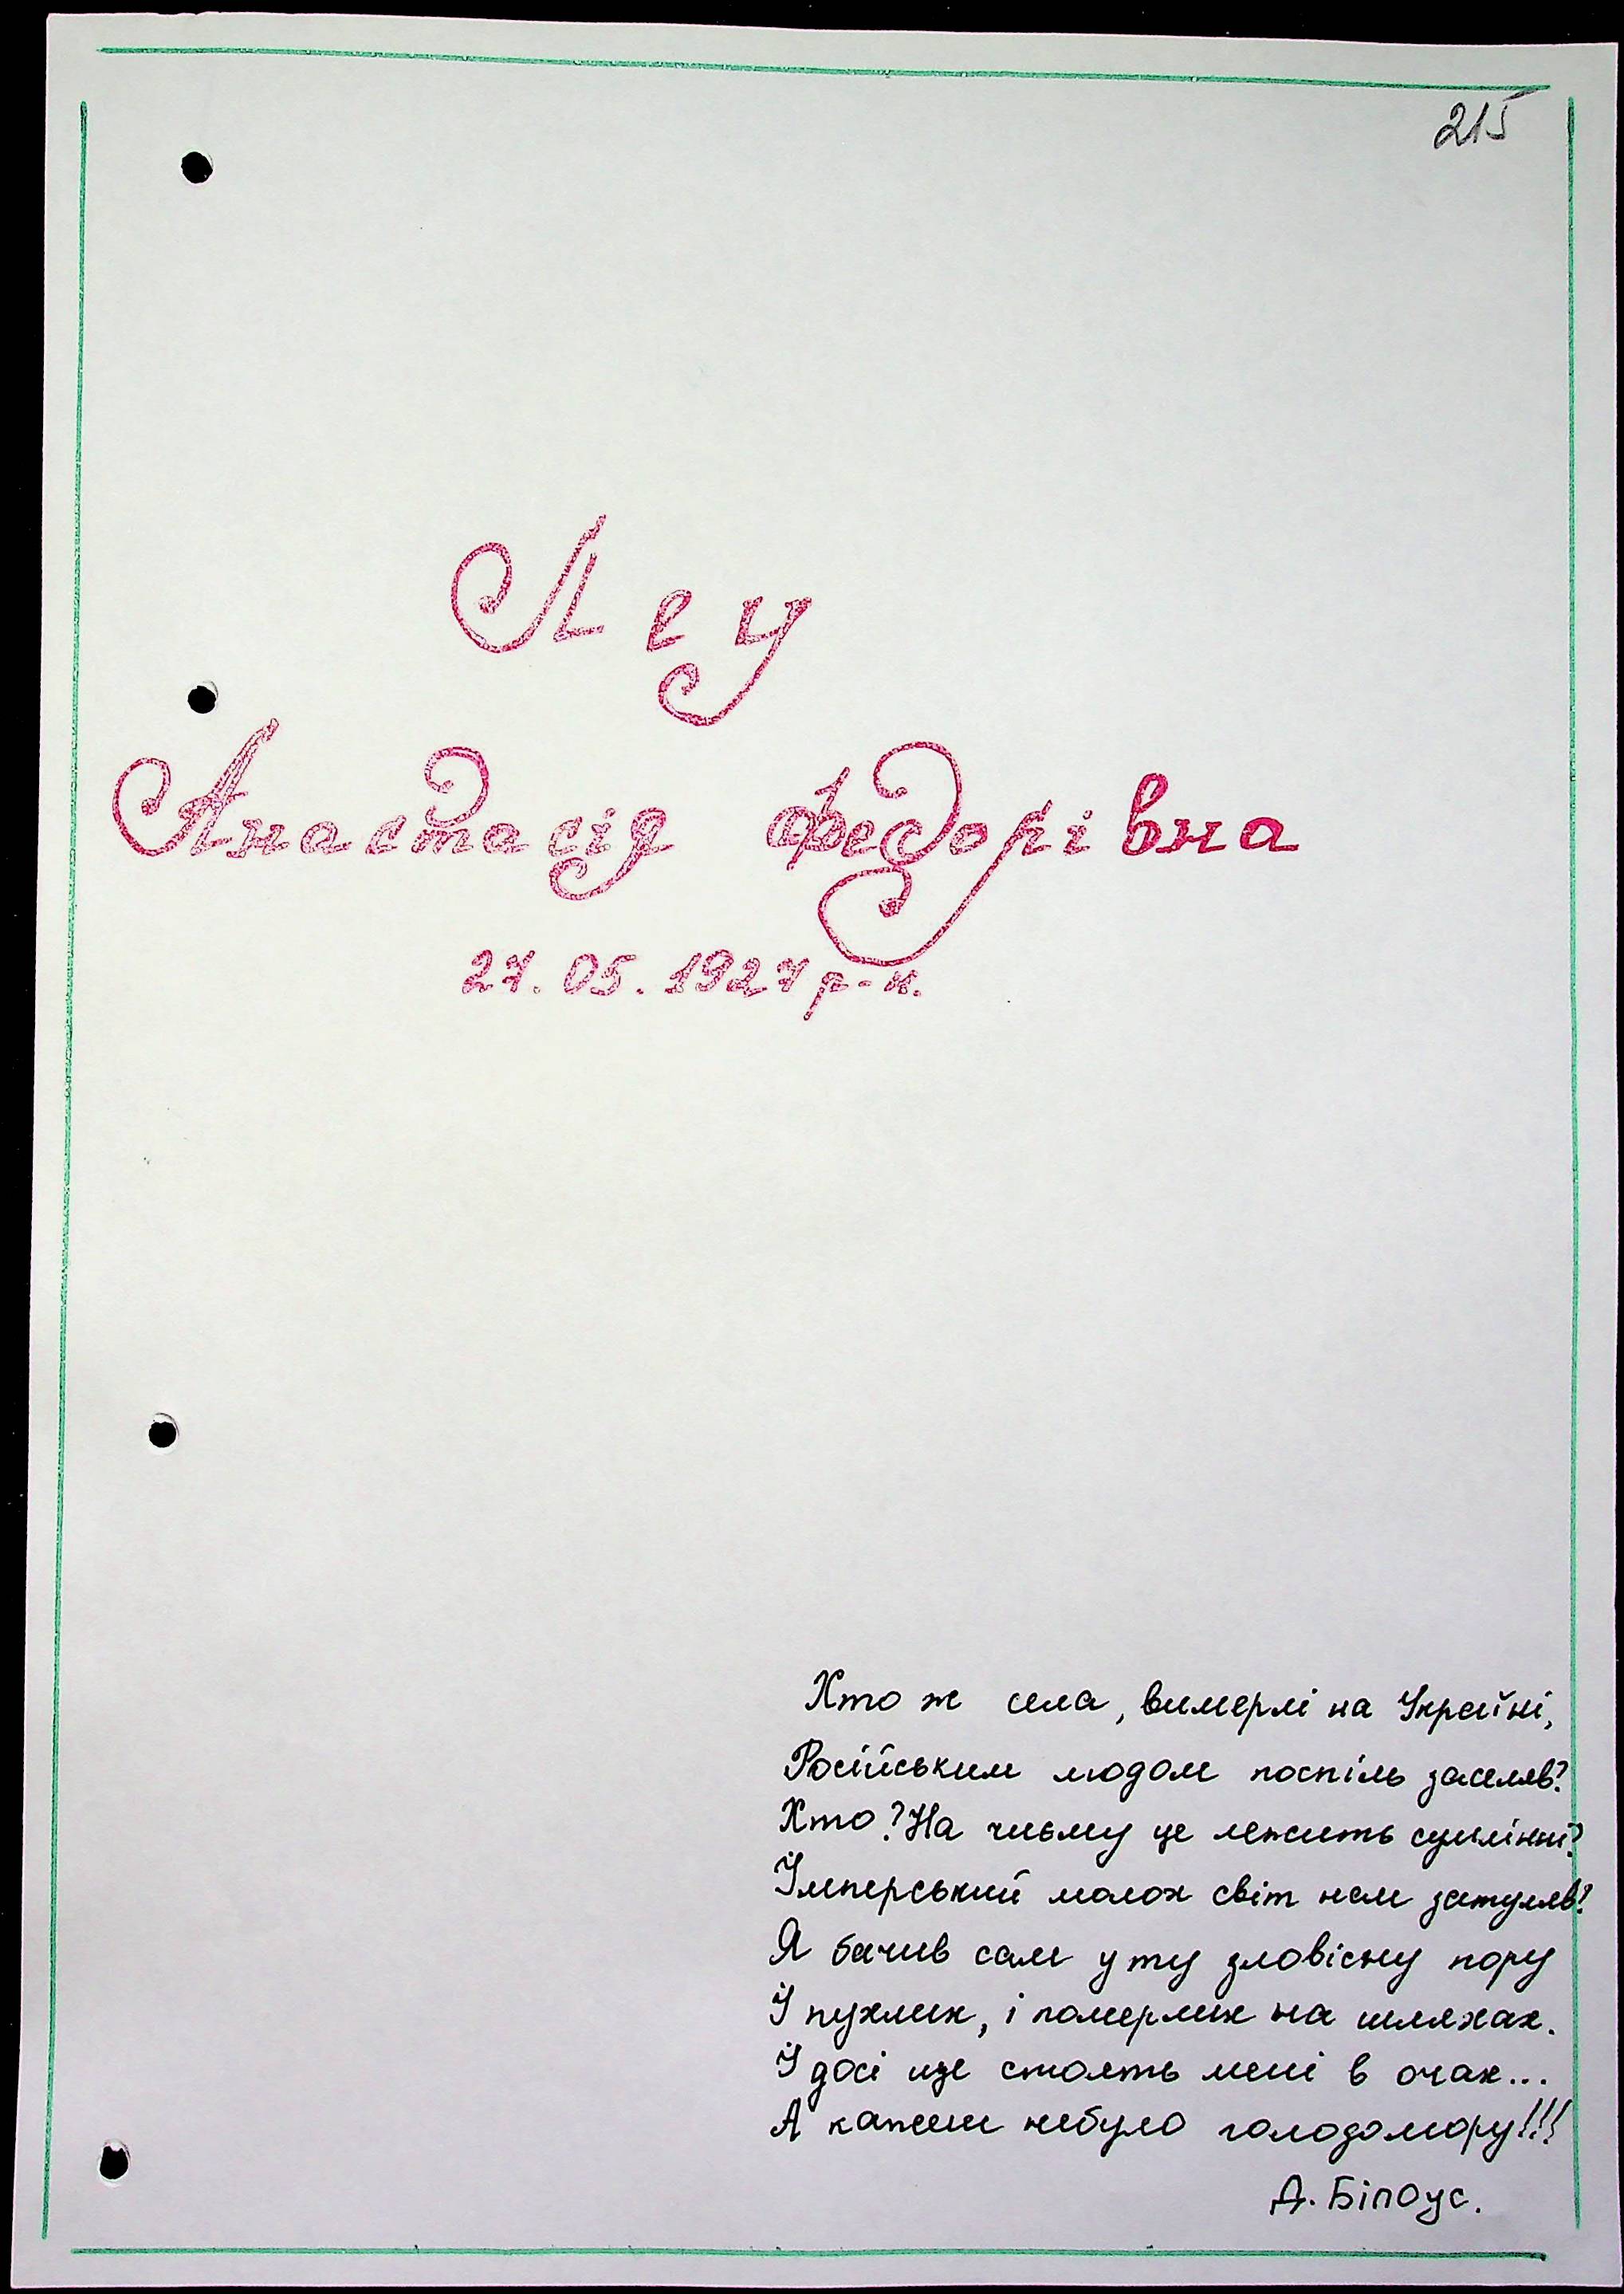 215
Леу
Анастасія Федорівна
27.05.1927 р-н.
Хто ж села, вимерлі на Україні,
Російським людом поспіль заселяв?
Хто? На чиєму це лежить сумлінні?
Імперський молох світ нам затуляв!
Я бачив сам у ту зловісну пору
І пухлих, і померлих на шляхах.
І досі ще стоять мені в очах...
А кажеш небуло голодомору!!!
Д. Білоус.